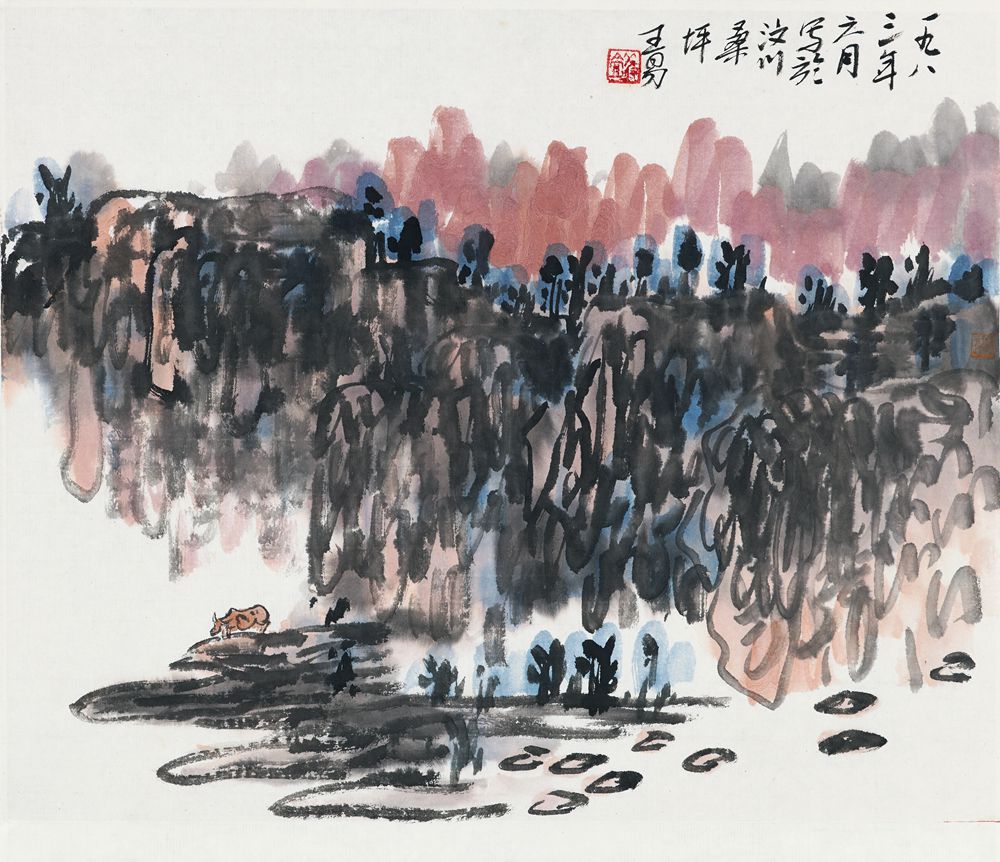 一九八
三年
六月
写于
汶川
桑
坪
王易